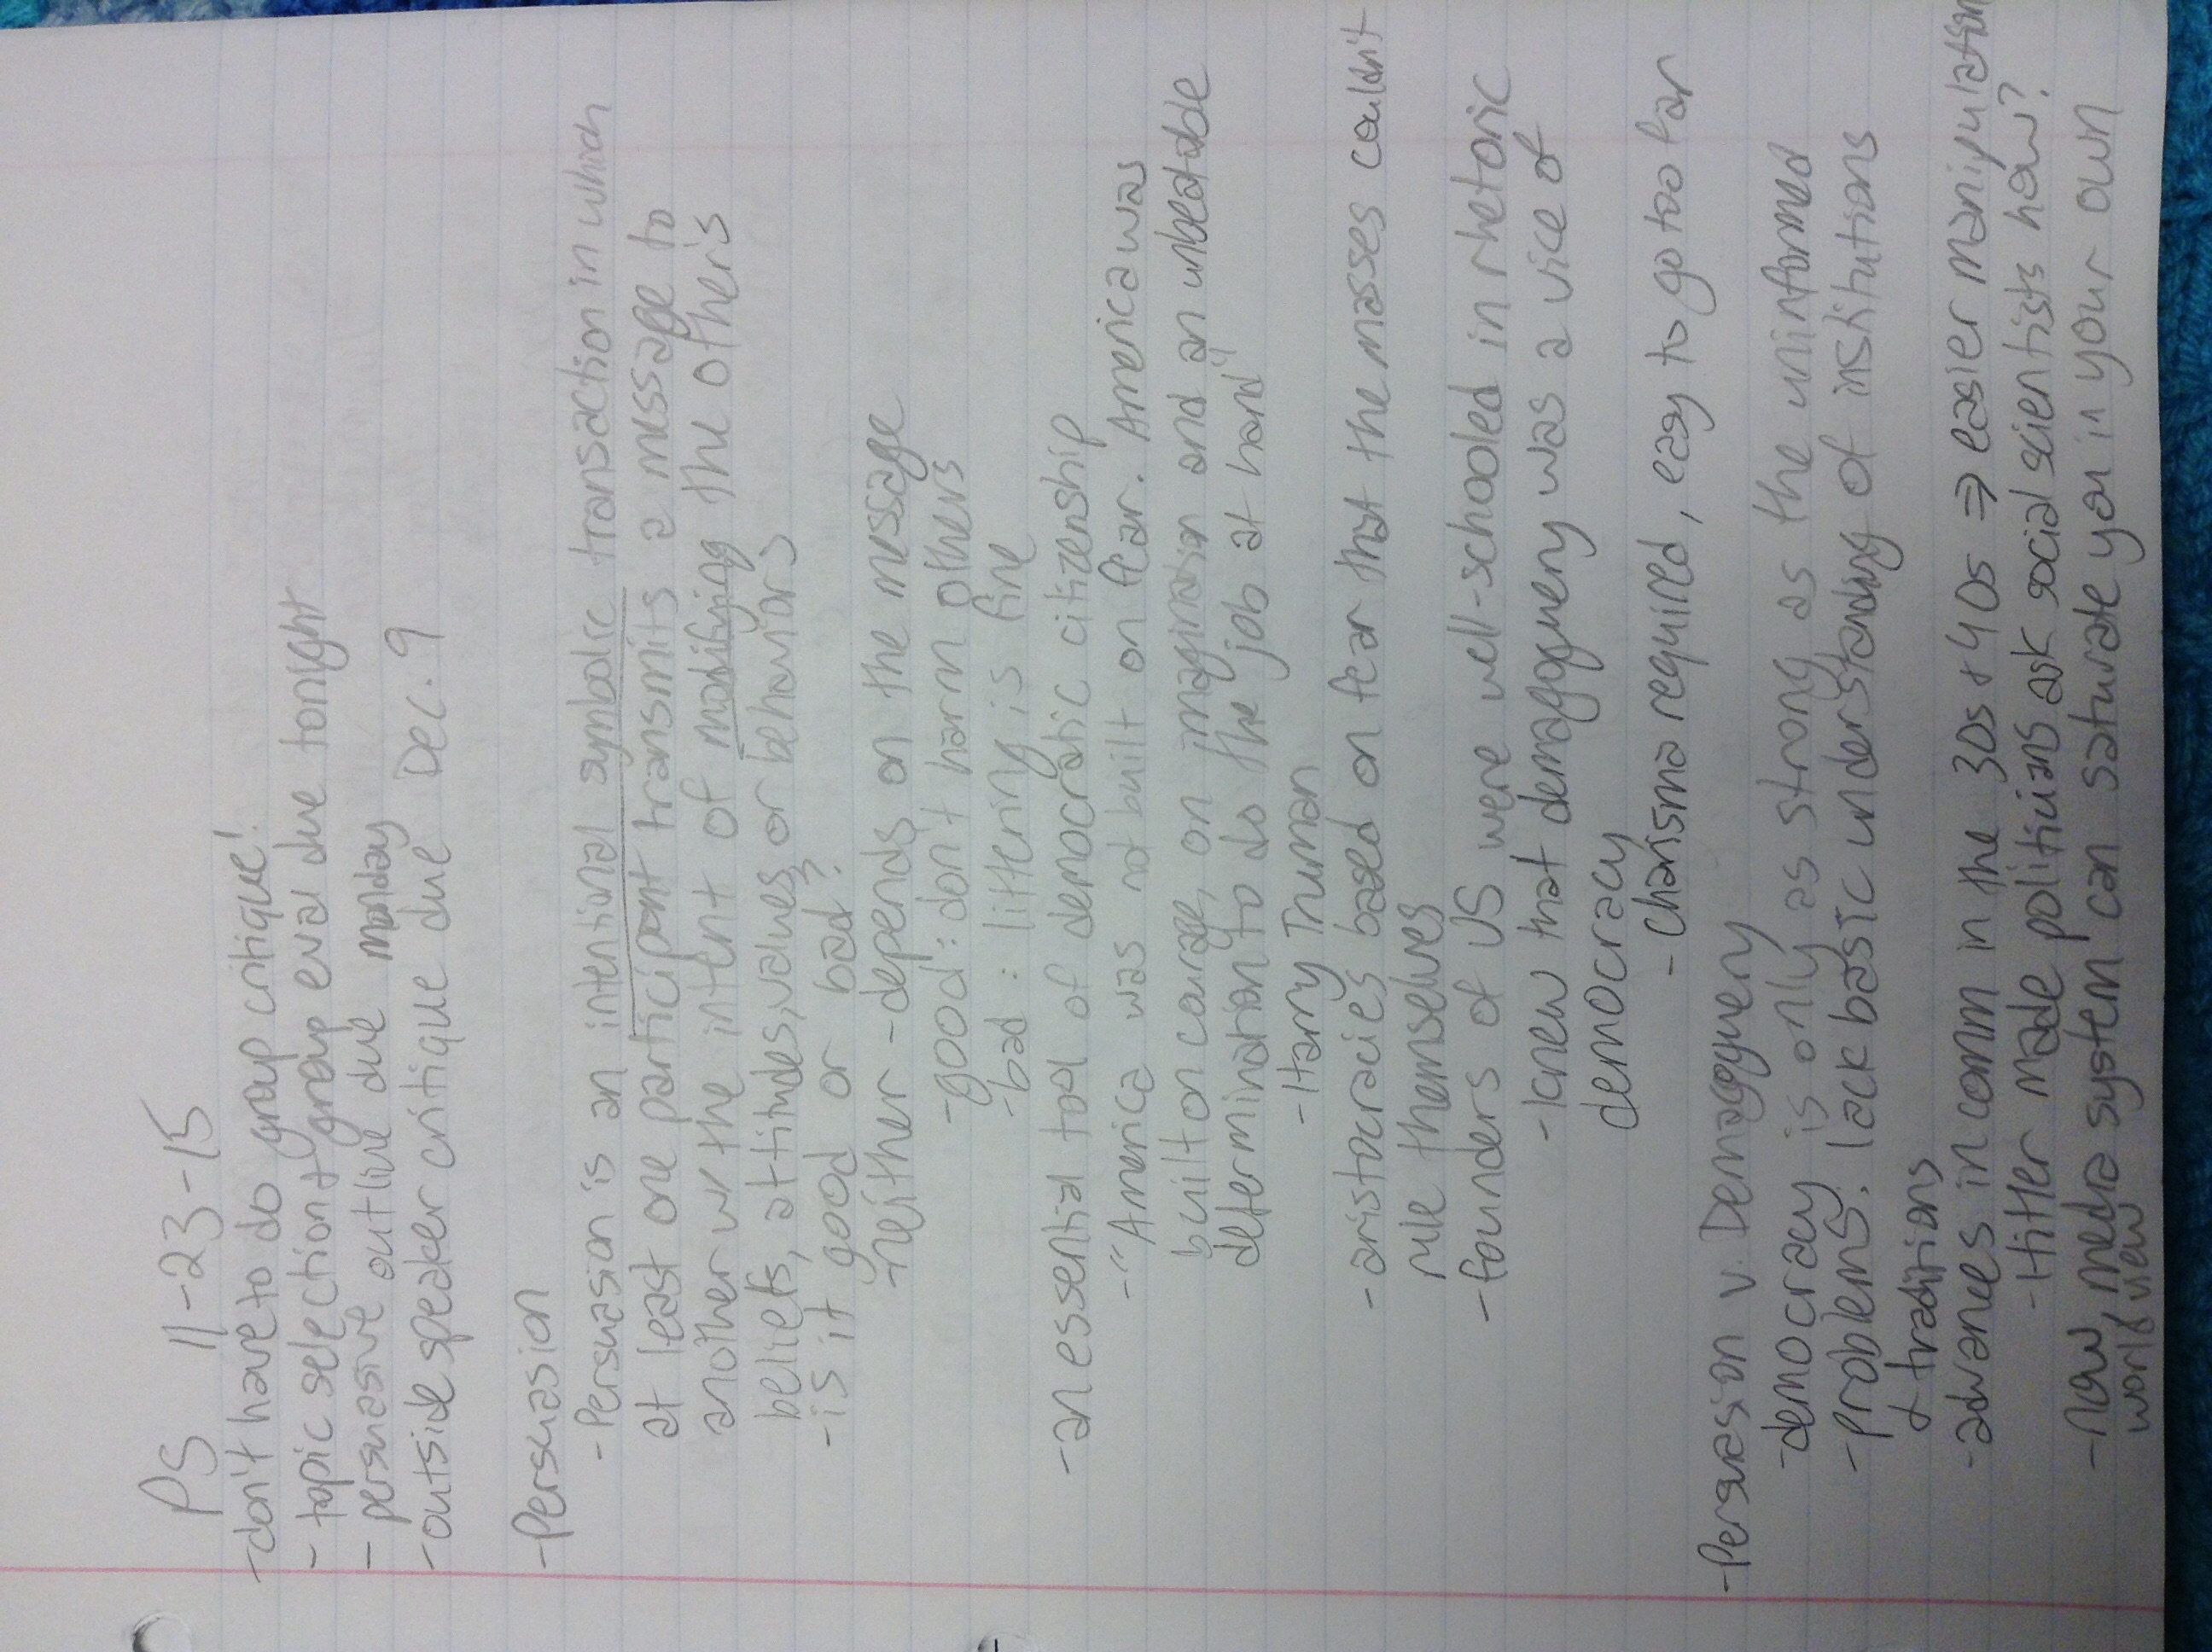 PS 11-23-15
-don't have to do group critique!
- topic selection + group eval due tonight
- persuasive outline due monday
-outside speaker critique due Dec. 9
-Persuasion
-Persuasion is an intentional symbolic transaction in which
at least one participant transmits a message to
another w/ the intent of modifying the other's
beliefs, attitudes, values, or behaviors
-is it good or bad?
-neither - depends on the message
-good: don't harm others
-bad: littering is fine
-an essential tool of democratic citizenship
-"America was not built on fear. America was
built on courage, on imagination and an unbeatable
determination to do the job at hand"
-Harry Truman
-aristocracies based on fear that the masses couldn't
rule themselves
-founders of US were well-schooled in rhetoric
-knew that demagoguery was a vice of
democracy
-charisma required, easy to go too far
-Persuasion v. Demagoguery
-democracy is only as strong as the uninformed
-problems: lack basic understanding of institutions
+ traditions
-advances in comm in the 30s + 40s ⇒ easier manipulation
-Hitler made politicians ask social scientists how?
-now, media system can saturate you in your own
world view